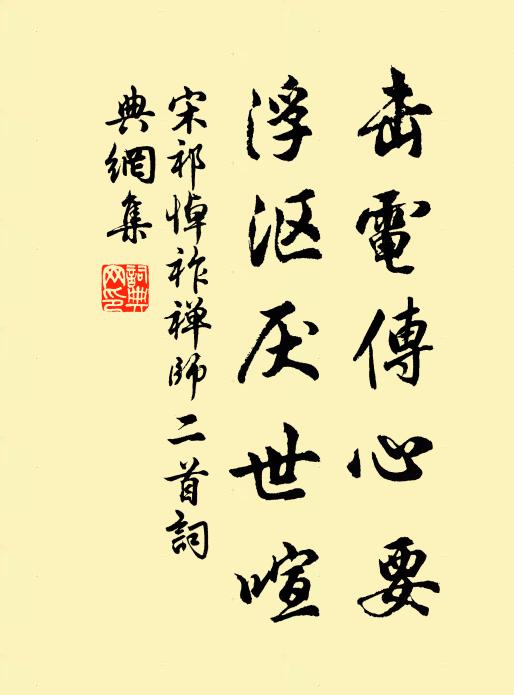 击電傳心要
浮沤厌世喧
宋祁悼祚禅師二首詞
典網集
詞典
网印